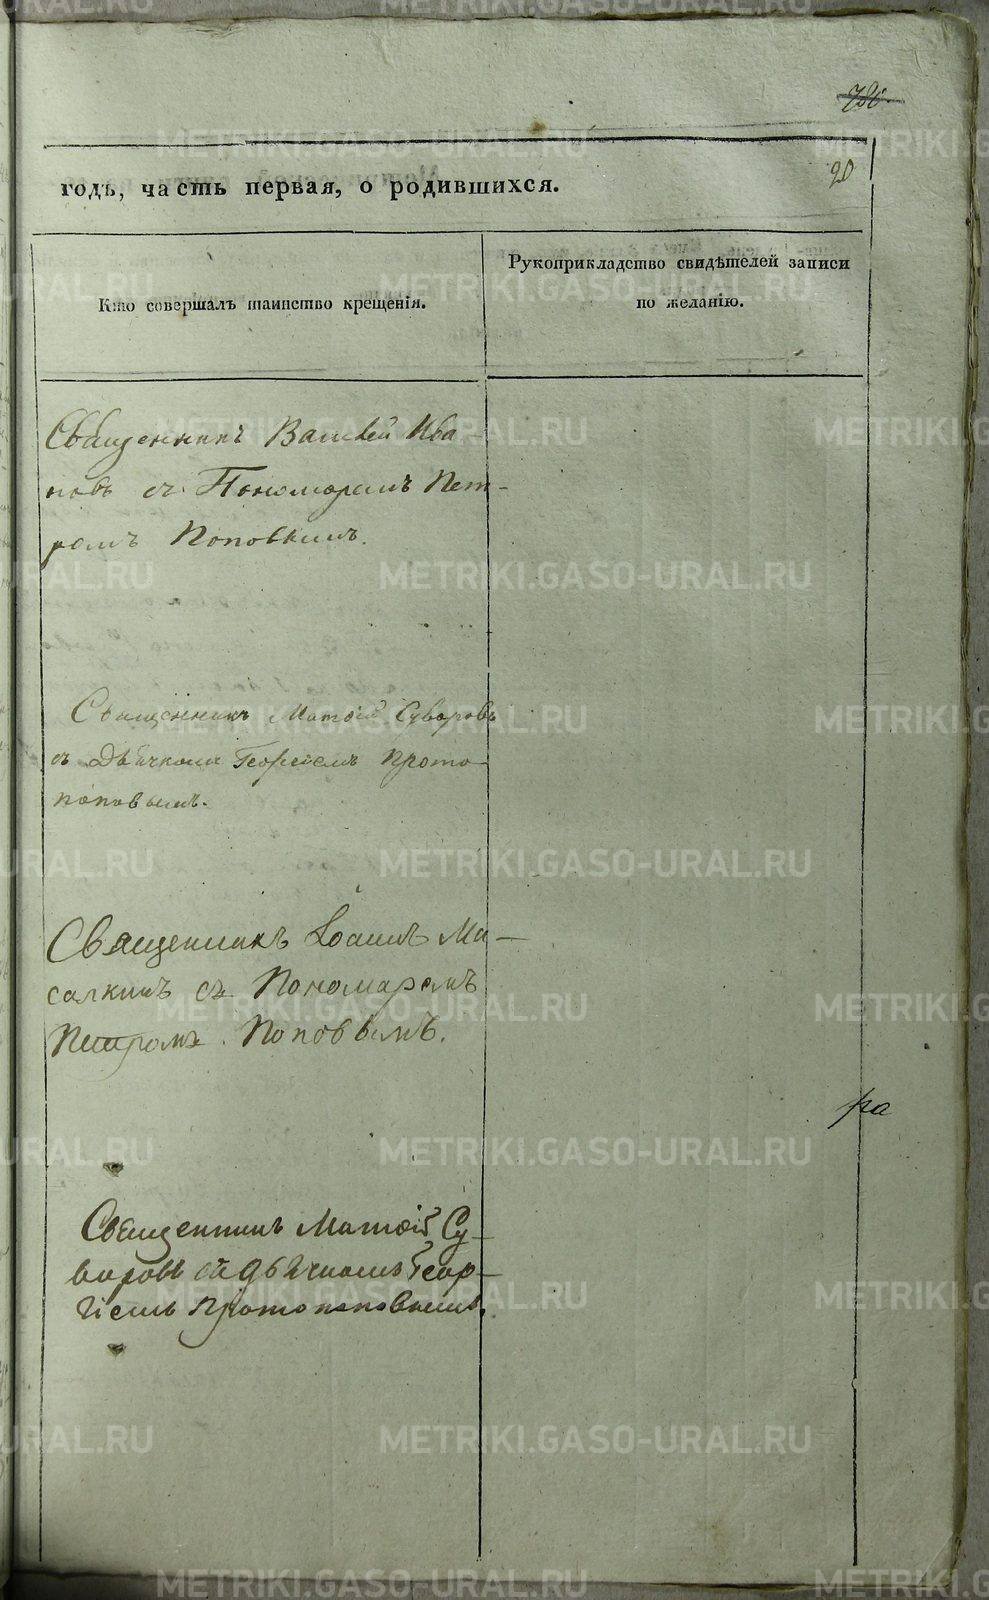 780.
20
годъ, часть первая, о родившихся.
Кто совершалъ таинство крещенія.
Рукоприкладство свидѣтелей записи
по желанію.
Священникъ Ва Ива-
новъ съ Пономаремъ Пет-
ромъ Поповымъ.
Священникъ Матѳій Суворовъ
съ Дьячкомъ Георгіемъ Прото-
поповымъ.
Священникъ Іоаннъ Ма-
салкинъ съ Пономаремъ
Петромъ Поповымъ.
ра
Священникъ Матѳій Су-
воровъ съ дьячкомъ Геор-
гіемъ Протопоповымъ.
METRIKI.GASO-URAL.RU